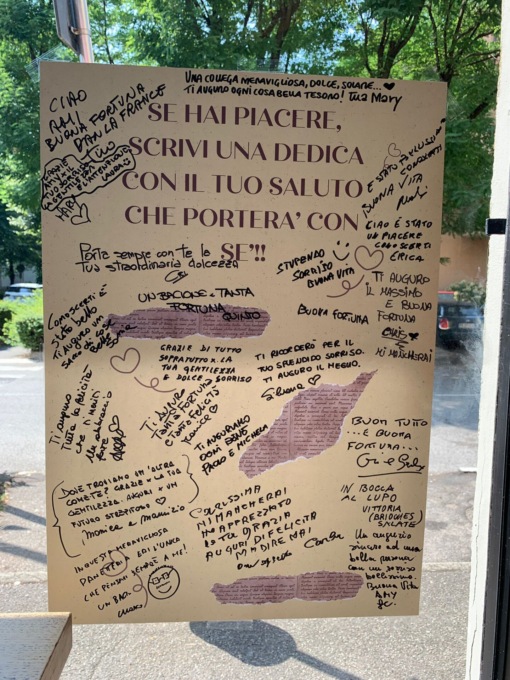 UNA COLLEGA MERAVIGLIOSA, DOLCE, SOLARE...
TI AUGURO OGNI COSA BELLA TESORO! Tua Mary
CIAO
AMI
BUONA FORTUNA
DAN LA FRANCE
SE HAI PIACERE,
SCRIVI UNA DEDICA
CON IL TUO SALUTO
CHE PORTERA' CON
SE'!!
GRAZIE DI
TUO
E STATO
CONOSCERTI
BUONA VITA
CIAO È STATO
UN PIACERE
CONOSCERTI
ERICA
Porta sempre con te la
tua straordinaria dolcezza
STUPENDO
SORRISO
BUONA VITA
TI AUGURO
IL MASSIMO
E BUONA
FORTUNA
MI MANCHERAI
UN BACIONE. TANTA
FORTUNA
QUINTO
BUONA FORTUNA
Conoscerti è
stato bello
Ti auguro un
GRAZIE DI TUTTO
SOPRATUTTO X LA
TUA GENTILEZZA
E DOLCE SORRISO
TI RICORDERÒ PER IL
TUO SPLENDIDO SORRISO.
TI AUGURO IL MEGLIO.
Silvana
Ti auguro
Tutta la felicità
che ti meriti
Un abbraccio
forte
Ti Auguro
Tanta Fortuna
e Tanta Felicità
TI AUGURIAMO
OGNI BENE
PAOLO E MICHELA
BUON TUTTO
... E BUONA
FORTUNA...
DOVE TROVIAMO UN'ALTRA
COME TE? GRAZIE X LA TUA
GENTILEZZA. AUGURI X UN
FUTURO STREPITOSO
Monica e Maurizio
CARISSIMA
MI MANCHERAI
HO APPREZZATO
LA TUA GRAZIA
AUGURI DI FELICITÀ
Carla
IN BOCCA
AL LUPO
VITTORIA
(BRIOCHES)
SALATE
IN QUESTA MERAVIGLIOSA
SEI L'UNICA
CHE PENSAVI SEMPRE A ME!
UN BACIO.
Un augurio
sincero ad una
bella persona
con un sorriso
bellissimo.
Buona Vita
AMY